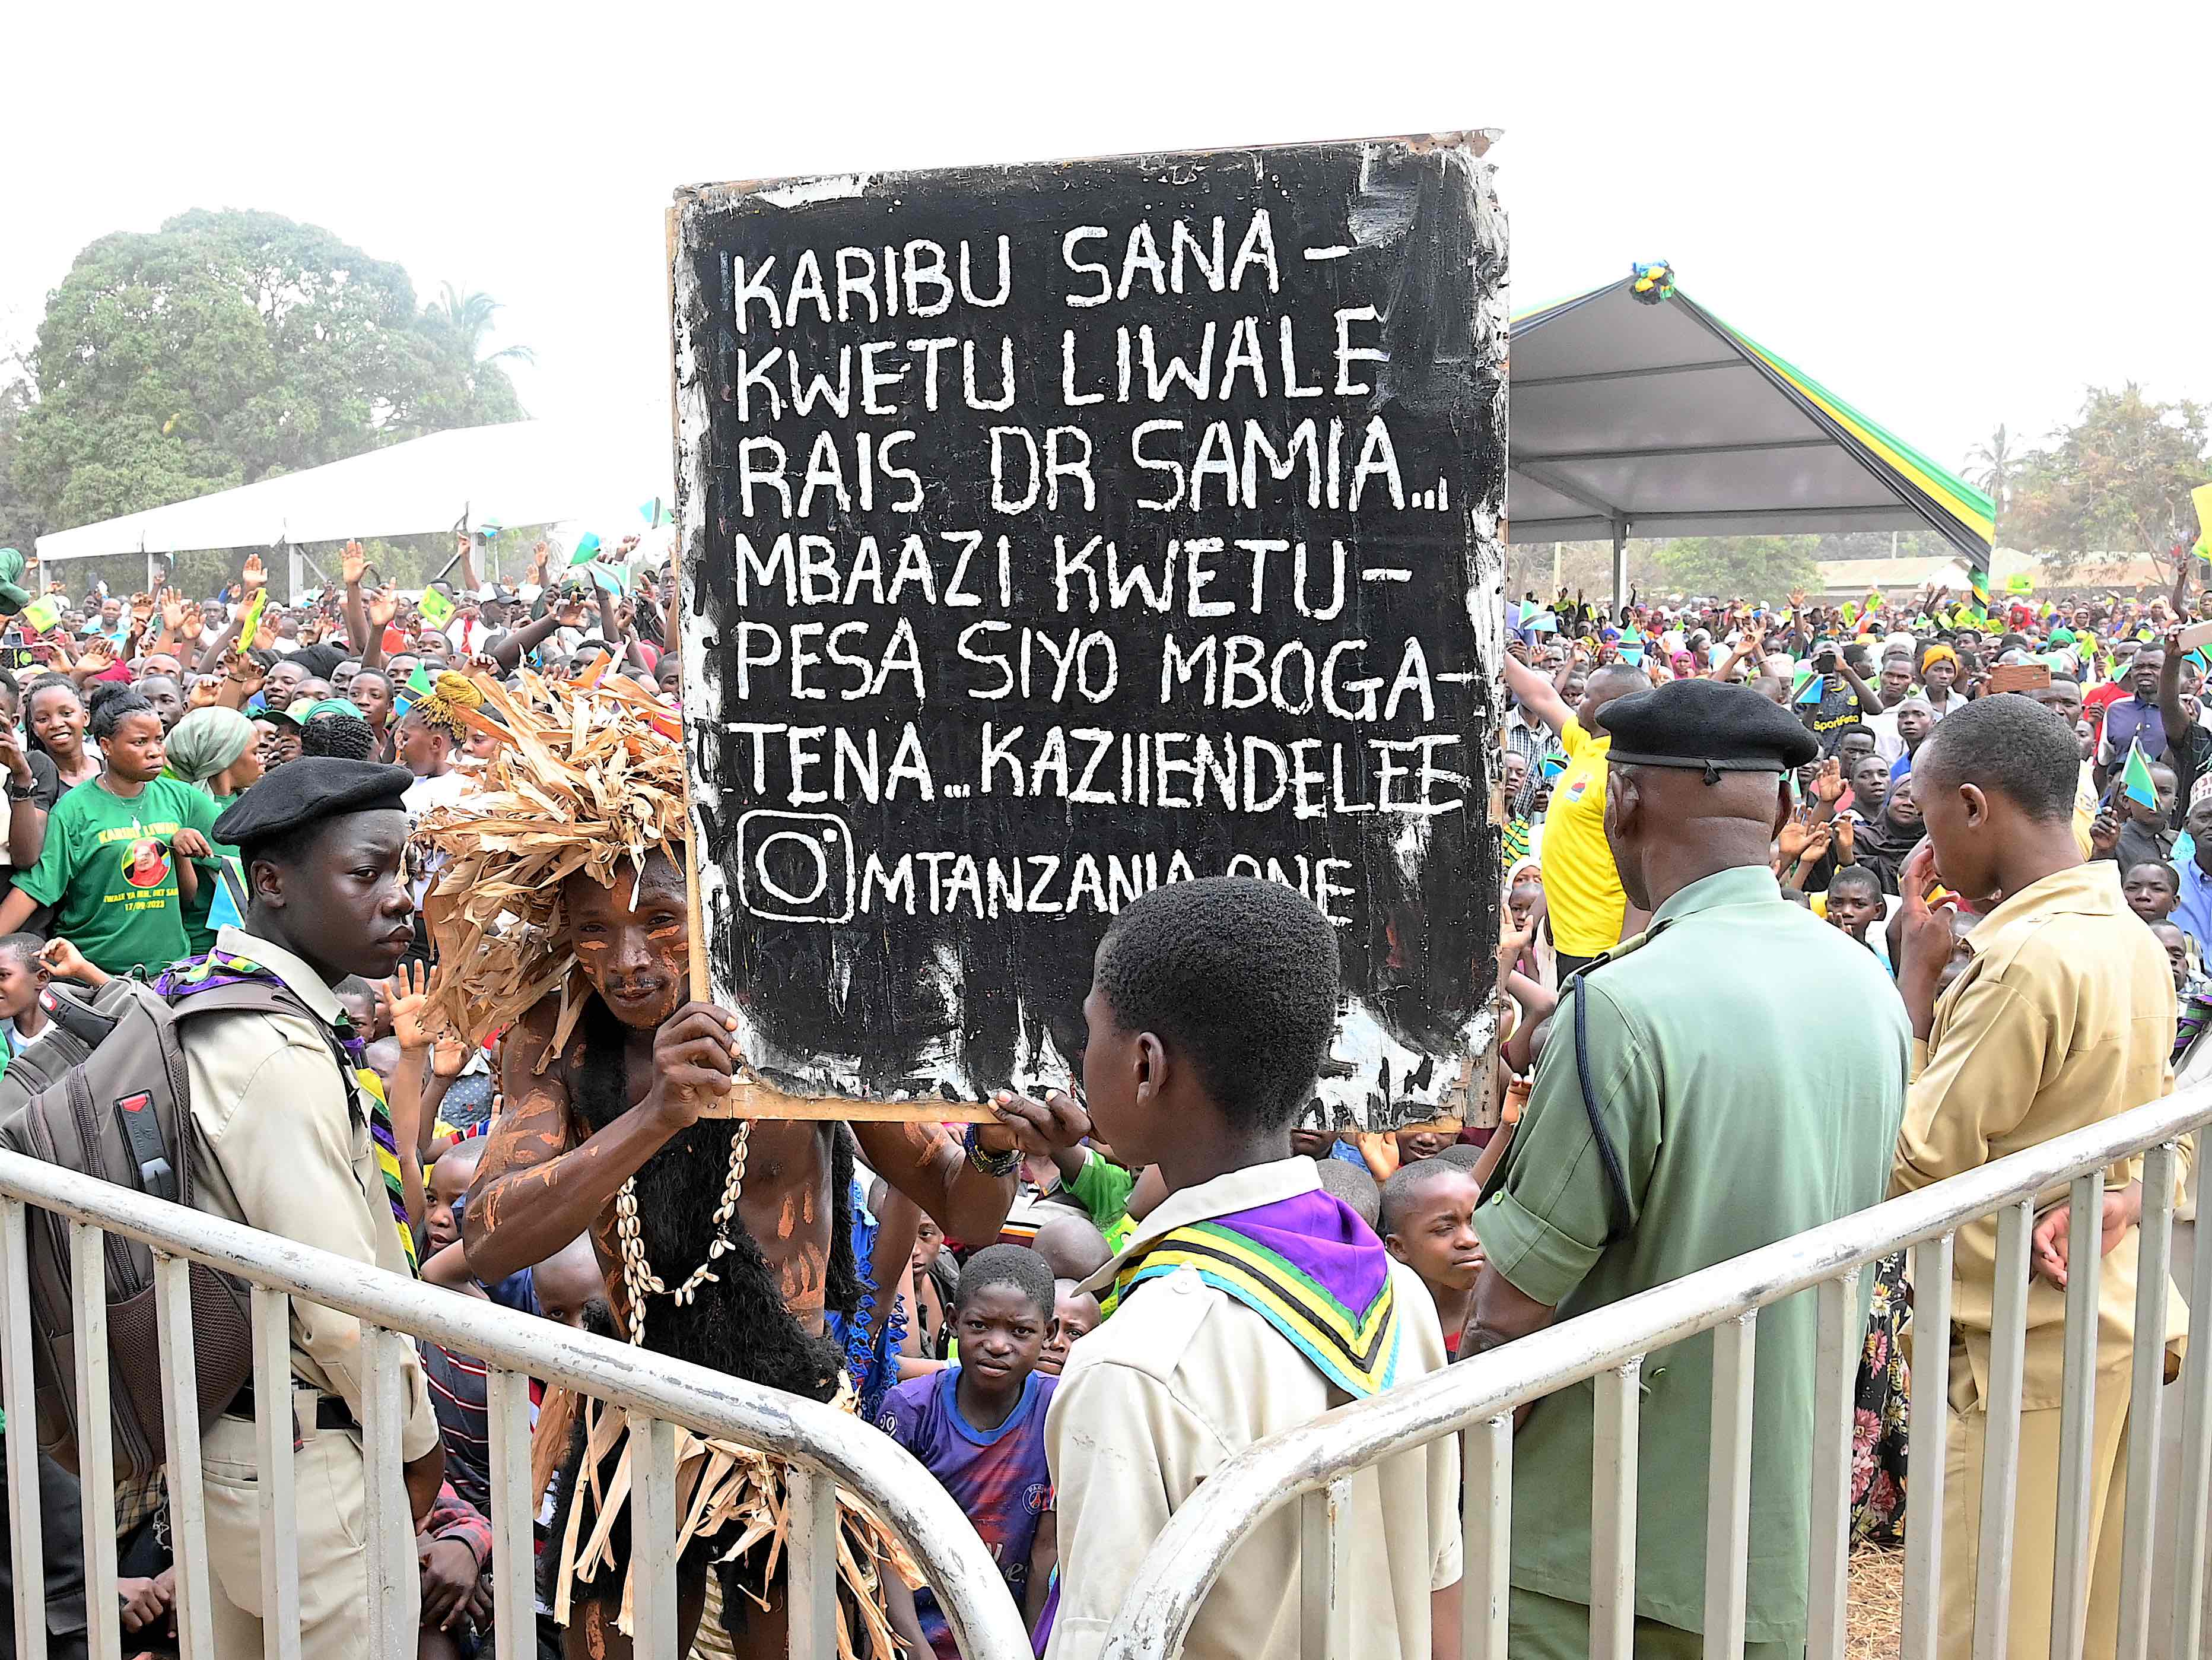 KARIBU SANA -
KWETU LIWALE
RAIS DR SAMIA...
MBAAZI KWETU -
PESA SIYO MBOGA -
TENA... KAZIIENDELEE
MTANZANIA ONE
SportPesa
17/09/2023